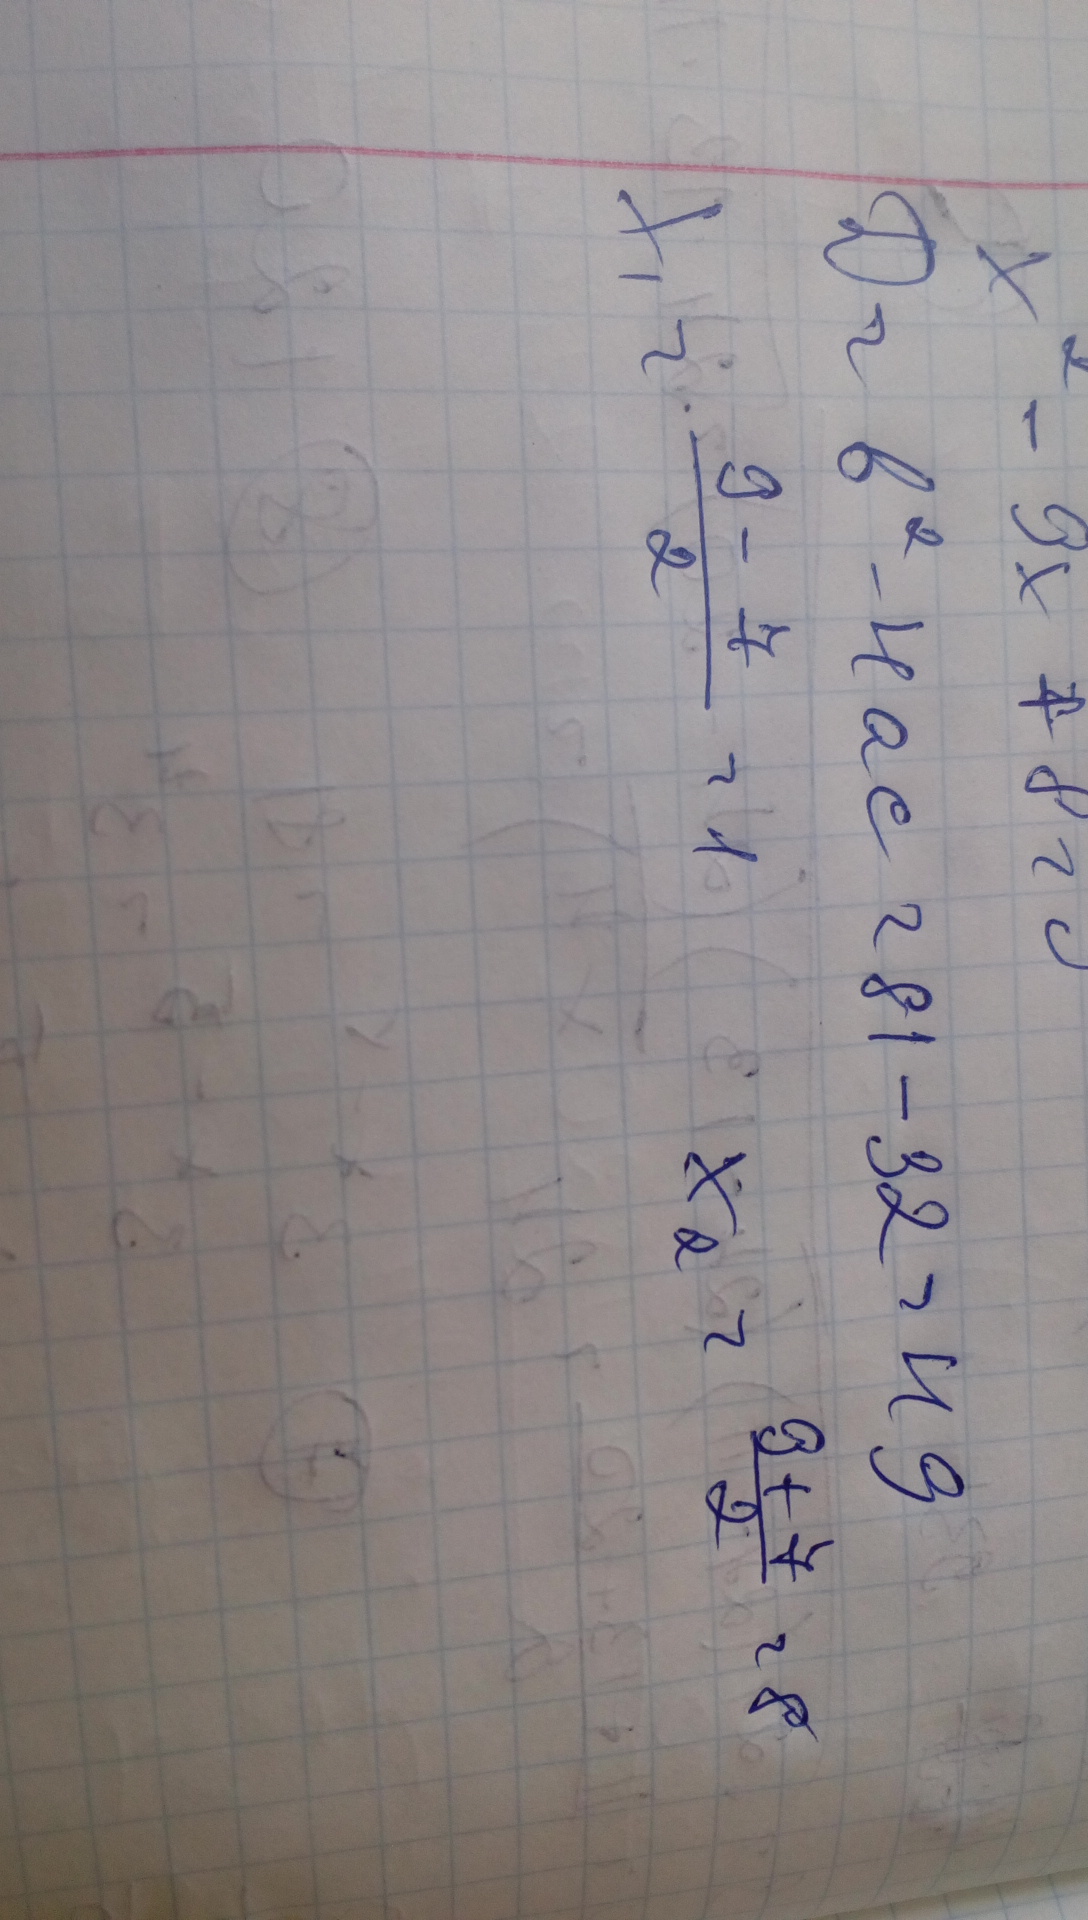 x² - 9x + 8 = 0
D = b² - 4ac = 81 - 32 = 49
x₁ = (9 - 7)/2 = 1    x₂ = (9 + 7)/2 = 8